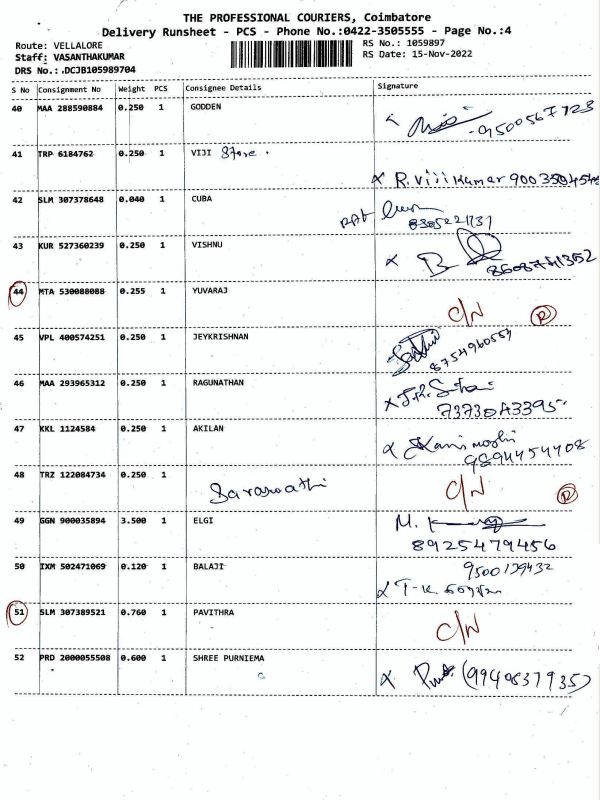 THE PROFESSIONAL COURIERS, Coimbatore
Delivery Runsheet - PCS - Phone No.:0422-3505555 - Page No.:4
Route: VELLALORE RS No.: 1059897
Staff: VASANTHAKUMAR RS Date: 15-Nov-2022
DRS No.:.DCJB105989704
S No Consignment No Weight PCS Consignee Details Signature
40 MAA 288590884 0.250 1 GODDEN 9500567723
41 TRP 6184762 0.250 1 VIJI Store.
x R. Viji Kumar
42 SLM 307378648 0.040 1 CUBA
43 KUR 527360239 0.250 1 VISHNU
x B
44 MTA 530088088 0.255 1 YUVARAJ
C/N R
45 VPL 400574251 0.250 1 JEYKRISHNAN
8754960553
46 MAA 293965312 0.250 1 RAGUNATHAN
7373043395
47 KKL 1124584 0.250 1 AKILAN
x Kanimozhi
9894454408
48 TRZ 122084734 0.250 1
C/N R
49 GGN 900035894 3.500 1 ELGI M.
8925479456
50 IXM 502471069 0.120 1 BALAJI 9500139432
x T-K
51 SLM 307389521 0.760 1 PAVITHRA
C/N
52 PRD 2000055508 0.600 1 SHREE PURNIEMA
x (9940837935)